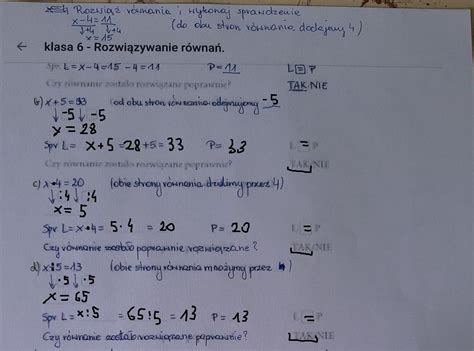 Rozwiąż równania i wykonaj sprawdzenie
x-4=11 (do obu stron równania dodajemy 4)
↓+4 ↓+4
x=15
← klasa 6 - Rozwiązywanie równań.
Spr. L=x-4=15-4=11 P=11 L=P
Czy równanie zostało rozwiązane poprawnie? TAK/NIE
b) x+5=33 (od obu stron równania odejmujemy -5
↓-5 ↓-5
x=28
Spr L= x+5=28+5=33 P=33 L=P
Czy równanie zostało rozwiązane poprawnie? TAK/NIE
c) x•4=20 (obie strony równania dzielimy przez 4)
↓:4 ↓:4
x=5
Spr L=x•4=5•4=20 P=20 L=P
Czy równanie zostało poprawnie rozwiązane? TAK/NIE
d) x:5=13 (obie strony równania mnożymy przez )
↓•5 ↓•5
x=65
Spr L=x:5=65:5=13 P=13 L=P
Czy równanie zostało rozwiązane poprawnie? TAK/NIE